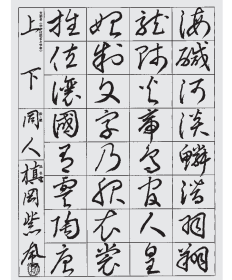 海醎河淡鱗潛羽翔
龍師火帝鳥官人皇
始制文字乃服衣裳
推位讓國有虞陶唐
上下同人